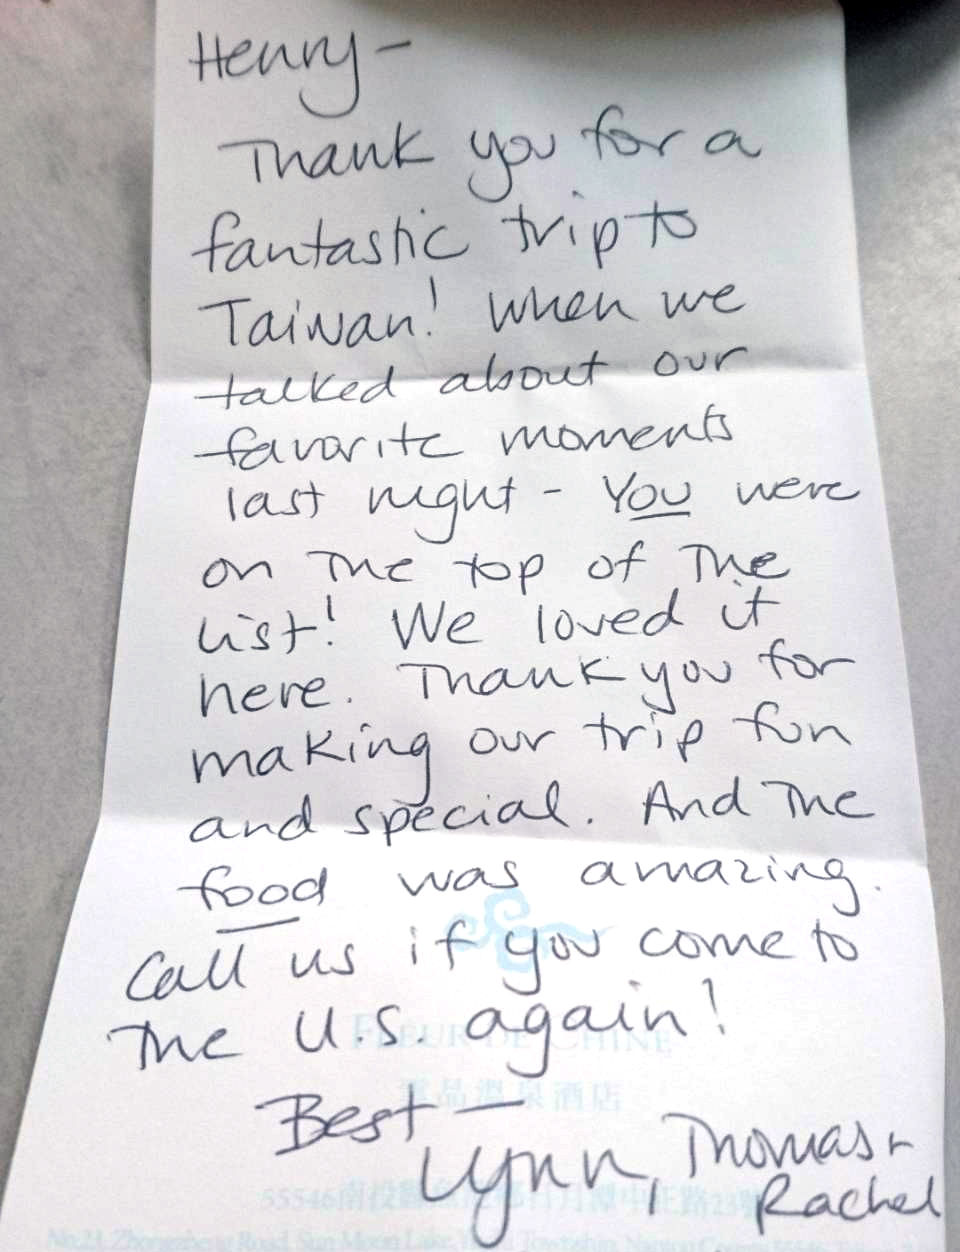 Henry-
Thank you for a
fantastic trip to
Taiwan! When we
talked about our
favorite moments
last night - You were
on the top of the
list! We loved it
here. Thank you for
making our trip fun
and special. And the
food was amazing.
Call us if you come to
the U.S. again!
FLEUR DE CHINE
雲品溫泉酒店
Best -
Lynn, Thomas +
Rachel
55546南投縣魚池鄉日月潭中正路23號
No.23, Zhongzheng Road, Sun Moon Lake, Yuchi Township, Nantou County 55546, Taiwan